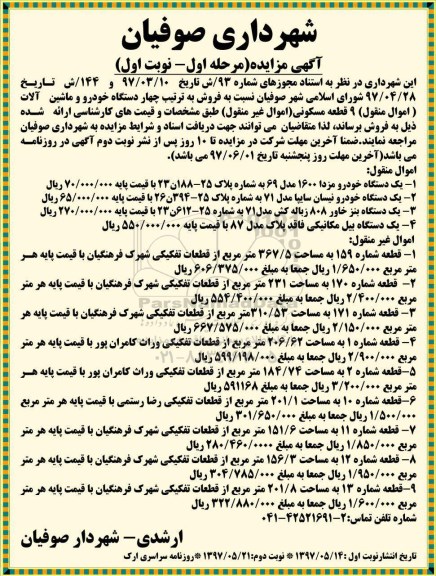 شهرداری صوفیان
آگهی مزایده(مرحله اول- نوبت اول)
این شهرداری در نظر به استناد مجوزهای شماره ۹۳/ش تاریخ ۹۷/۰۳/۱۰ و ۱۴۴/ش تاریخ
۹۷/۰۴/۲۸ شورای اسلامی شهر صوفیان نسبت به فروش به ترتیب چهار دستگاه خودرو و ماشین آلات
( اموال منقول) ۹ قطعه مسکونی(اموال غیر منقول) طبق مشخصات و قیمت های کارشناسی ارائه شده
ذیل به فروش برساند، لذا متقاضیان می توانند جهت دریافت اسناد و شرایط مزایده به شهرداری صوفیان
مراجعه نمایند.ضمنا آخرین مهلت شرکت در مزایده تا ۱۰ روز پس از نشر نوبت دوم آگهی در روزنامه
می باشد(آخرین مهلت روز پنجشنبه تاریخ ۹۷/۰۶/۰۱ می باشد).
اموال منقول:
۱- یک دستگاه خودرو مزدا ۱۶۰۰ مدل ۶۹ به شماره پلاک ۲۵-۱۸۸ن۲۳ با قیمت پایه ۷۰/۰۰۰/۰۰۰ ریال
۲- یک دستگاه خودرو نیسان سایپا مدل ۷۱ به شماره پلاک ۲۵-۳۹۴ن۲۶ با قیمت پایه ۶۵/۰۰۰/۰۰۰ ریال
۳- یک دستگاه بنز خاور ۸۰۸ زباله کش مدل۷۱ به شماره ۲۵-۶۱۲ن۲۳ با قیمت پایه ۲۷۰/۰۰۰/۰۰۰ ریال
۴- یک دستگاه بیل مکانیکی فاقد پلاک مدل ۸۷ با قیمت پایه ۵۵۰/۰۰۰/۰۰۰ ریال
اموال غیر منقول:
۱- قطعه شماره ۱۵۹ به مساحت ۳۶۷/۵ متر مربع از قطعات تفکیکی شهرک فرهنگیان با قیمت پایه هر
متر مربع ۱/۶۵۰/۰۰۰ ریال جمعا به مبلغ ۶۰۶/۳۷۵/۰۰۰ ریال
۲- قطعه شماره ۱۷۰ به مساحت ۲۳۱ متر مربع از قطعات تفکیکی شهرک فرهنگیان با قیمت پایه هر متر
مربع ۲/۴۰۰/۰۰۰ ریال جمعا به مبلغ ۵۵۴/۴۰۰/۰۰۰ ریال
۳- قطعه شماره ۱۷۱ به مساحت ۳۱۰/۵۳متر مربع از قطعات تفکیکی شهرک فرهنگیان با قیمت پایه هر
متر مربع ۲/۱۵۰/۰۰۰ ریال جمعا به مبلغ ۶۶۷/۵۷۵/۰۰۰ ریال
۴- قطعه شماره ۱ به مساحت ۲۰۶/۶۲ متر مربع از قطعات تفکیکی وراث کامران پور با قیمت پایه هر متر
مربع ۲/۹۰۰/۰۰۰ ریال جمعا به مبلغ ۵۹۹/۱۹۸/۰۰۰ ریال
۵-قطعه شماره ۲ به مساحت ۱۸۴/۷۴ متر مربع از قطعات تفکیکی وراث کامران پور با قیمت پایه هر
متر مربع ۳/۲۰۰/۰۰۰ ریال جمعا به مبلغ ۵۹۱۱۶۸ ریال
۶-قطعه شماره ۱۰ به مساحت ۲۰۱/۱ متر مربع از قطعات تفکیکی رضا رستمی با قیمت پایه هر متر مربع
۱/۵۰۰/۰۰۰ ریال جمعا به مبلغ ۳۰۱/۶۵۰/۰۰۰ ریال
۷- قطعه شماره ۱۱ به مساحت ۱۵۱/۶ متر مربع از قطعات تفکیکی شهرک فرهنگیان با قیمت پایه هر متر
مربع ۱/۸۵۰/۰۰۰ ریال جمعا به مبلغ ۲۸۰/۴۶۰/۰۰۰۰ ریال
۸- قطعه شماره ۱۲ به مساحت ۱۵۶/۳ متر مربع از قطعات تفکیکی شهرک فرهنگیان با قیمت پایه هر متر
مربع ۱/۹۵۰/۰۰۰ ریال جمعا به مبلغ ۳۰۴/۷۸۵/۰۰۰ ریال
۹-قطعه شماره ۱۳ به مساحت ۲۰۱/۸ متر مربع از قطعات تفکیکی شهرک فرهنگیان با قیمت پایه هر متر
مربع ۱/۶۰۰/۰۰۰ ریال جمعا به مبلغ ۳۲۲/۸۸۰/۰۰۰ ریال
شماره تلفن تماس:۲-۰۴۱-۴۲۵۲۱۶۹۱
ارشدی- شهردار صوفیان
تاریخ انتشارنوبت اول :۱۳۹۷/۰۵/۱۴ * نوبت دوم:۱۳۹۷/۰۵/۲۱ *روزنامه سراسری ارک